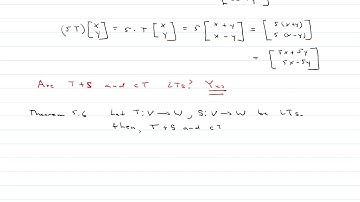 x + y
(5T) [x y] = 5 · T [x y] = 5 [x + y x - y] = [5(x+y) 5(x-y)]
= [5x + 5y 5x - 5y]
Are T+S and cT LTs? Yes
Theorem 5.6 Let T: V → W, S: V → W be LTs.
then, T + S and cT